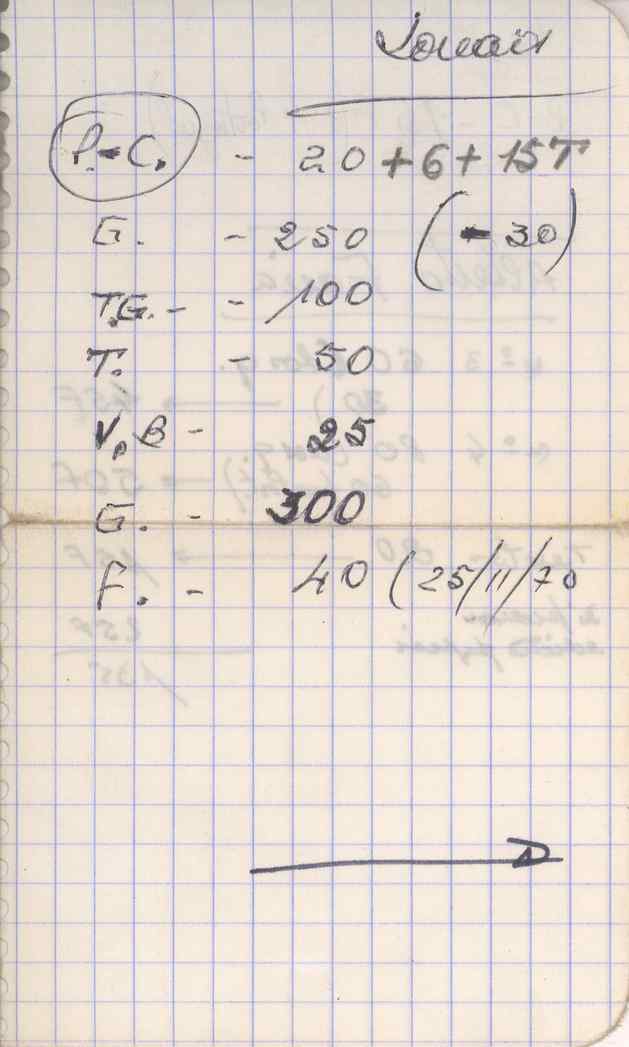 P.-C. - 20 + 6 + 15T
G. - 250 (- 30)
T.G. - - 100
T. - 50
V.B - 25
G. - 300
F. - 40 (25/11/70